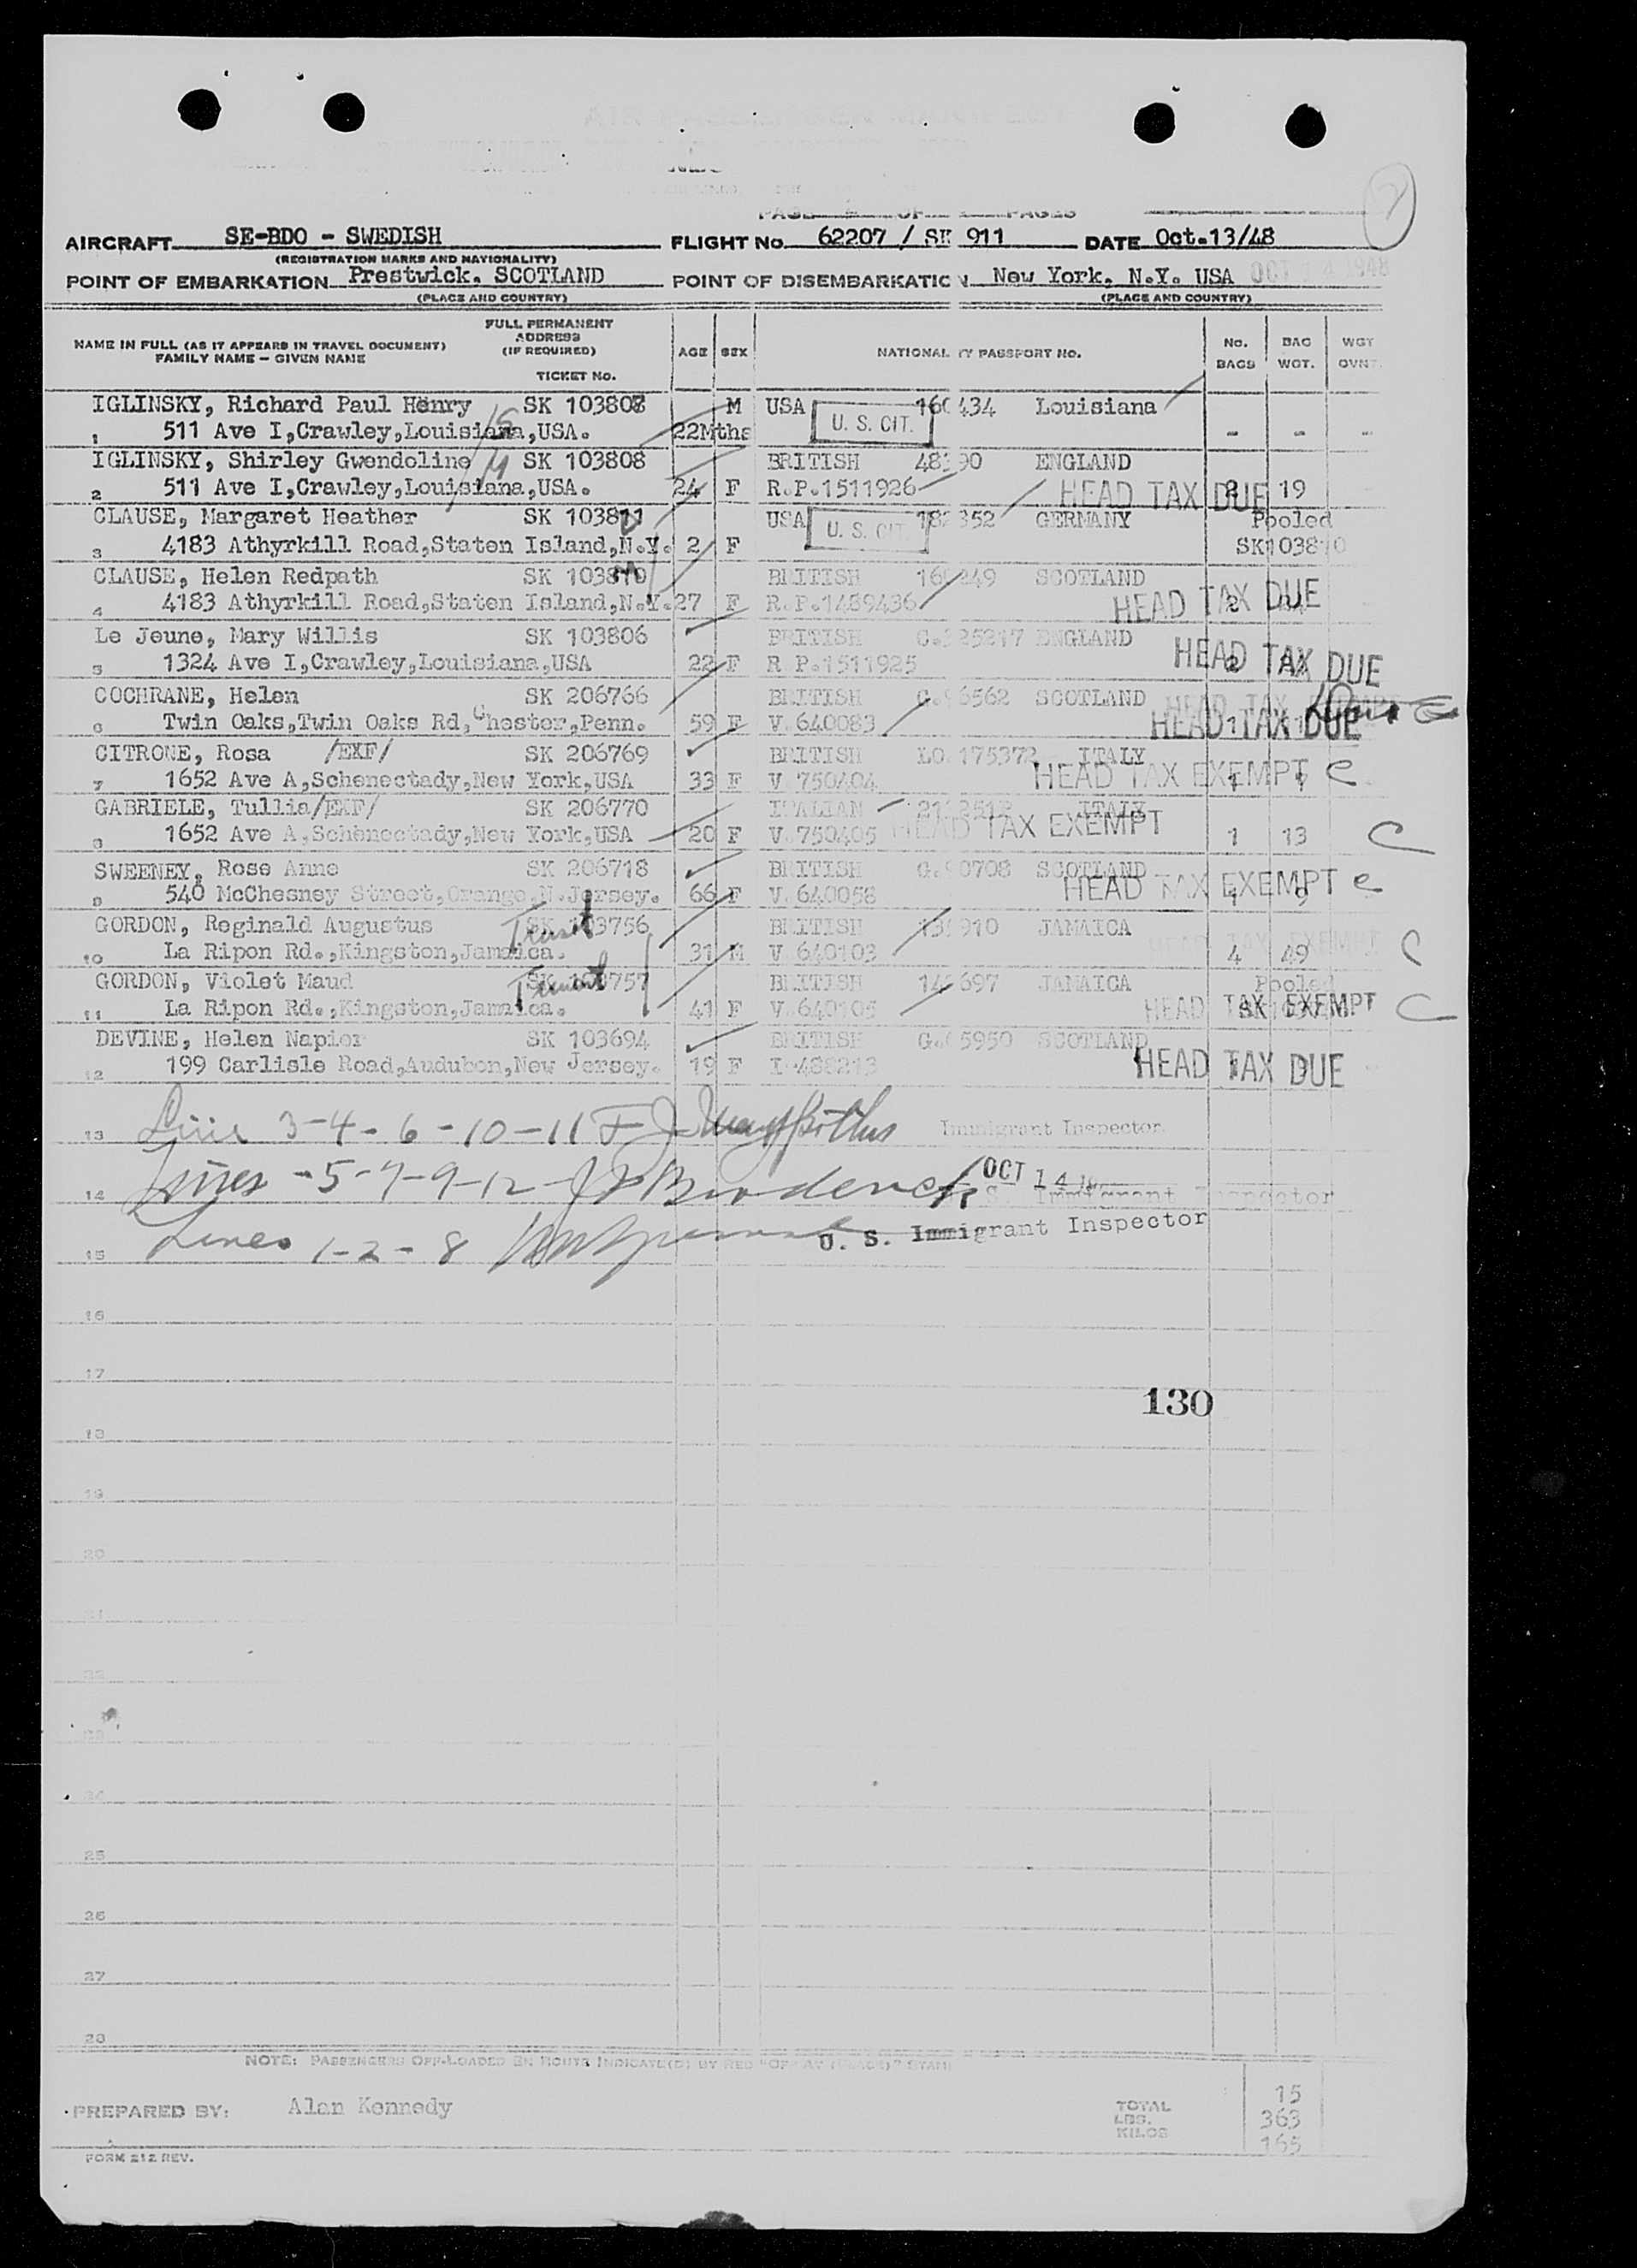 PAGE OF PAGES
AIRCRAFT SE-BDO - SWEDISH FLIGHT No. 62207 / SK 911 DATE Oct.13/48
(REGISTRATION MARKS AND NATIONALITY)
POINT OF EMBARKATION Prestwick. SCOTLAND POINT OF DISEMBARKATION New York, N.Y. USA OCT 14 1948
(PLACE AND COUNTRY) (PLACE AND COUNTRY)
NAME IN FULL (AS IT APPEARS IN TRAVEL DOCUMENT) FULL PERMANENT ADDRESS (IF REQUIRED) AGE SEX NATIONALITY PASSPORT No. No. BAGS BAG WGT. WGT OVNT.
FAMILY NAME - GIVEN NAME TICKET No.
IGLINSKY, Richard Paul Henry SK 103808 M USA 160434 Louisiana
1 511 Ave I,Crawley,Louisiana,USA. 22Mths U. S. CIT. - - -
IGLINSKY, Shirley Gwendoline SK 103808 BRITISH 48 90 ENGLAND
2 511 Ave I,Crawley,Louisiana,USA. 24 F R.P.1511926 HEAD TAX DUE 19
CLAUSE, Margaret Heather SK 103811 USA U. S. CIT 182352 GERMANY Pooled
3 4183 Athyrkill Road,Staten Island,N.Y. 2 F SK103810
CLAUSE, Helen Redpath SK 103810 BRITISH 160249 SCOTLAND
4 4183 Athyrkill Road,Staten Island,N.Y. 27 F R.P.1489436 HEAD TAX DUE
Le Jeune, Mary Willis SK 103806 BRITISH C.325217 ENGLAND
5 1324 Ave I,Crawley,Louisiana,USA 22 F R P.1511925 HEAD TAX DUE
COCHRANE, Helen SK 206766 BRITISH G. 6562 SCOTLAND
6 Twin Oaks,Twin Oaks Rd,Chester,Penn. 59 F V.640083 HEAD TAX DUE
CITRONE, Rosa /EXF/ SK 206769 BRITISH LO.175372 ITALY
7 1652 Ave A,Schenectady,New York,USA 33 F V 750404 HEAD TAX EXEMPT C
GABRIELE, Tullia/EXF/ SK 206770 ITALIAN ITALY
8 1652 Ave A,Schenectady,New York,USA 20 F V.750405 HEAD TAX EXEMPT 1 13 C
SWEENEY, Rose Anne SK 206718 BRITISH G. 0708 SCOTLAND
9 540 McChesney Street,Orange,N.Jersey. 66 F V.640058 HEAD TAX EXEMPT 1 9 C
GORDON, Reginald Augustus Transit SK 103756 BRITISH 910 JAMAICA
10 La Ripon Rd.,Kingston,Jamaica. 31 M V 640103 HEAD TAX EXEMPT 4 49 C
GORDON, Violet Maud Transit SK 103757 BRITISH 697 JAMAICA Pooled
11 La Ripon Rd.,Kingston,Jamaica. 41 F V.640105 HEAD TAX EXEMPT C
DEVINE, Helen Napier SK 103694 BRITISH G. 5950 SCOTLAND
12 199 Carlisle Road,Audubon,New Jersey. 19 F I 488213 HEAD TAX DUE
13 Line 3-4-6-10-11 Immigrant Inspector
14 Lines -5-7-9-12 OCT 14 U. S. Immigrant Inspector
15 Lines 1-2-8 U. S. Immigrant Inspector
16
17
130
18
19
20
21
22
23
24
25
26
27
28
NOTE: PASSENGERS OFF-LOADED EN ROUTE INDICATE(D) BY RED "OFF AT (PLACE)" STAMP
15
PREPARED BY: Alan Kennedy TOTAL
LBS. 363
KILOS 165
FORM 212 REV.